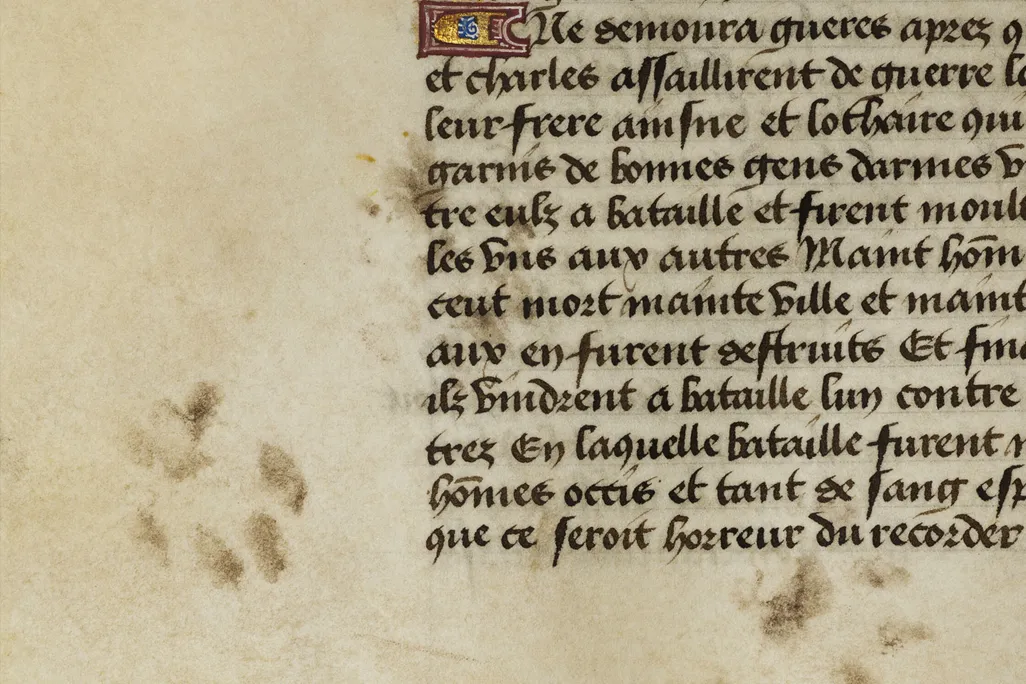 Ne demoura gueres aprez q
et charles assaillirent de guerre lo
leur frere ainsne et lothaire qui
garnis de bonnes gens darmes v
tre eulz a bataille et firent moul
les vns aux autres Maint hōm
ceut mort mainte ville et maint
aux en furent destruits Et fina
ilz vindrent a bataille lun contre
trez En laquelle bataille furent
hōmes occis et tant de sang esp
que ce seroit horreur du recorder